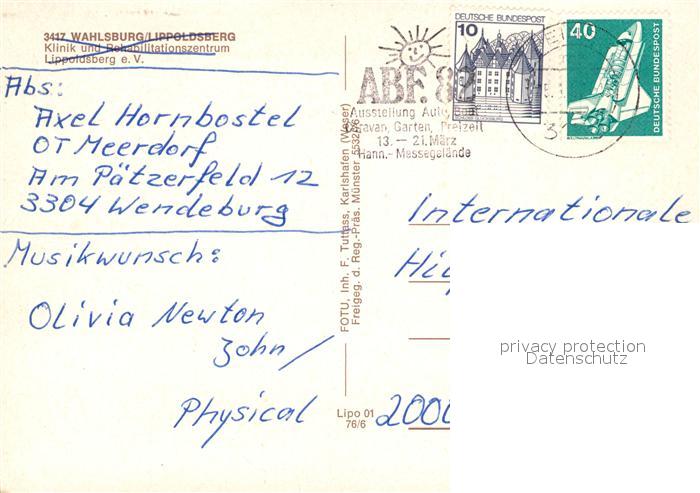 3417 WAHLSBURG/LIPPOLDSBERG
Klinik und Rehabilitationszentrum
Lippoldsberg e. V.
Abs:
Axel Hornbostel
OT Meerdorf
Am Pätzerfeld 12
3304 Wendeburg
Musikwunsch:
Olivia Newton
John /
Physical
FOTU, Inh. F. Tuttass, Karlshafen (Weser)
Freigeg. d. Reg.-Präs. Münster
Lipo 01
76/6
ABF. 82
Ausstellung Auto
Caravan, Garten, Freizeit
13. – 21. März
Hann.-Messegelände
DEUTSCHE BUNDESPOST
10
40
DEUTSCHE BUNDESPOST
Internationale
privacy protection
Datenschutz